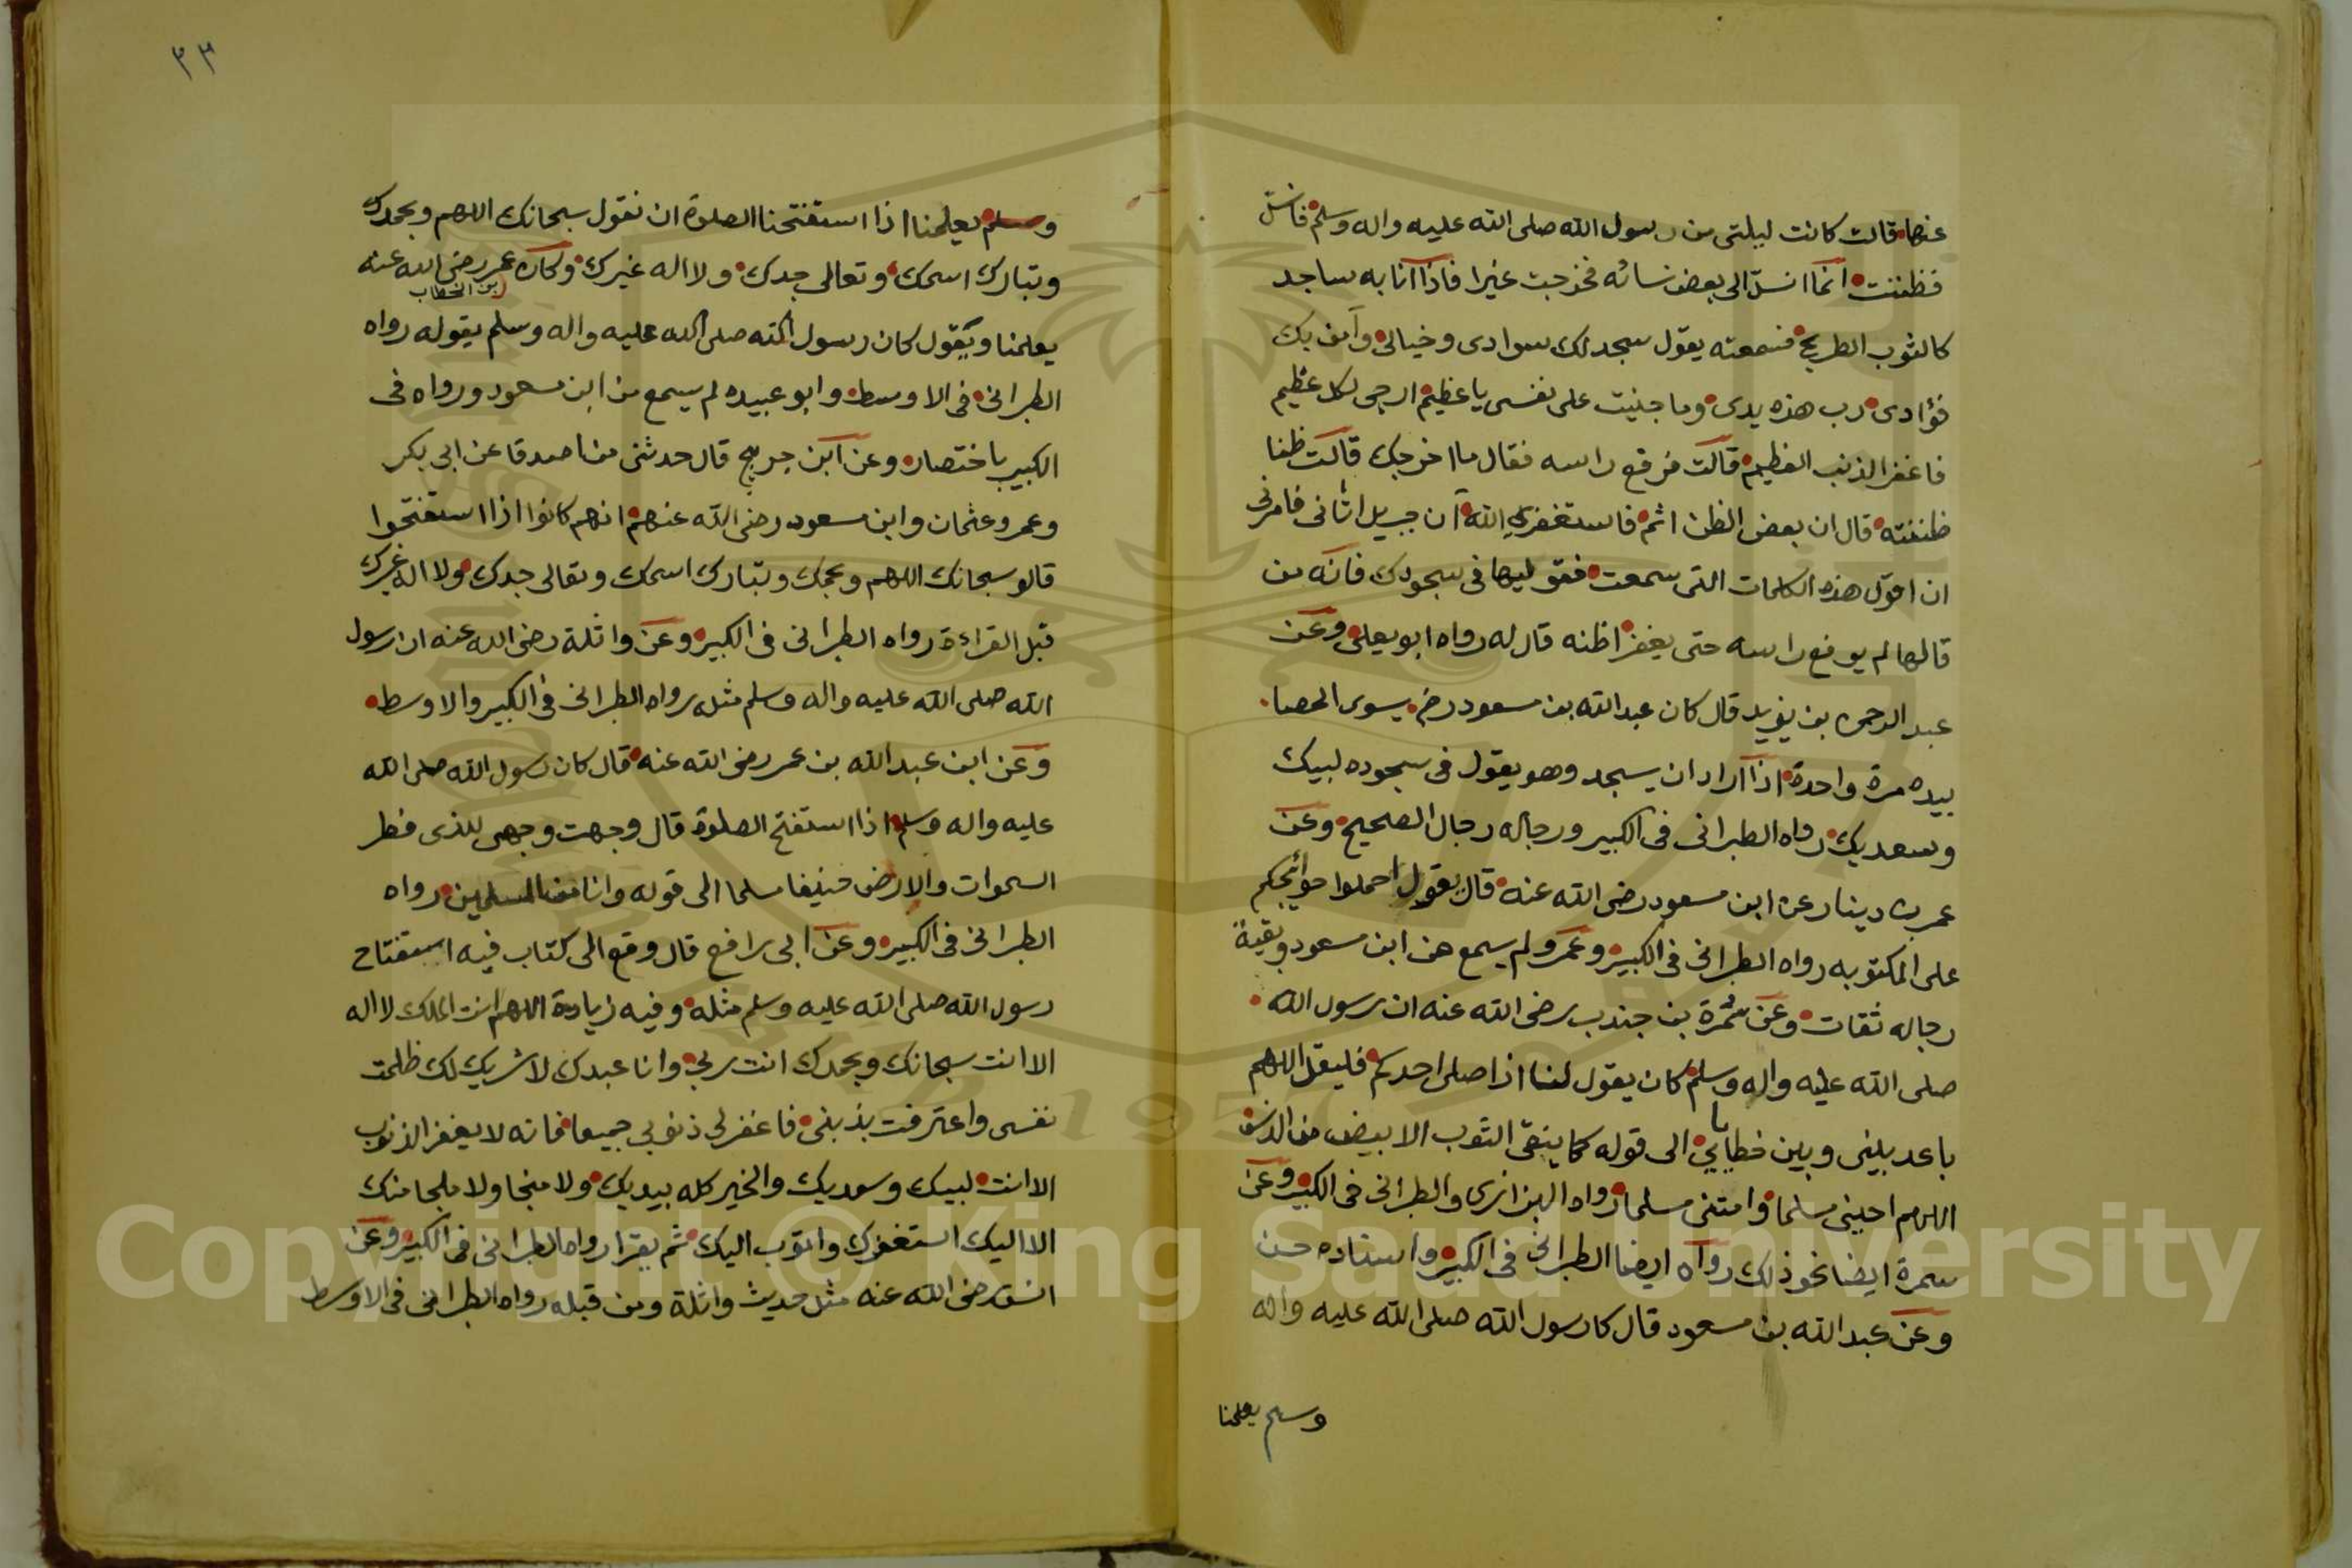 عنها قالت كانت ليلتى من رسول الله صلى الله عليه واله وسلم فانسل
فظننت انما انسل الى بعض نسائه فخرجت غيرا فاذا انا به ساجد
كالثوب الطريح فسمعته يقول سجد لك سوادى وخيالى وآمن بك
فؤادى رب هذه يدى وما جنيت على نفسى يا عظيم ارجى لكل عظيم
فاغفر الذنب العظيم قالت فرفع راسه فقال ما اخرجك قالت ظنا
ظننته قال ان بعض الظن اثم فاستغفرى الله ان جبريل اتانى فامرنى
ان اقول هذه الكلمات التى سمعت فقوليها فى سجودك فانه من
قالها لم يرفع راسه حتى يغفر اظنه قال له رواه ابو يعلى وعن
عبد الرحمن بن يزيد قال كان عبد الله بن مسعود رضى يسوى الحصا
بيده مرة واحدة اذا اراد ان يسجد وهو يقول فى سجوده لبيك
وسعديك رواه الطبرانى فى الكبير ورجاله رجال الصحيح وعن
عمر بن دينار عن ابن مسعود رضى الله عنه قال يقول احملوا حوائجكم
على المكتوبه رواه الطبرانى فى الكبير وعمرو لم يسمع من ابن مسعود وبقية
رجاله ثقات وعن سمرة بن جندب رضى الله عنه ان رسول الله
صلى الله عليه واله وسلم كان يقول لنا اذا صلى احدكم فليقل اللهم
باعد بينى وبين خطاياي الى قوله كما ينقى الثوب الابيض من الدنس
اللهم احينى مسلما وامتنى مسلما رواه البزار والطبرانى فى الكبير وعن
سمرة ايضا نحو ذلك رواه ايضا الطبرانى فى الكبير واسناده حسن
وعن عبد الله بن مسعود قال كا رسول الله صلى الله عليه واله
وسلم يعلمنا
٣٣
وسلم يعلمنا اذا استفتحنا الصلوة ان نقول سبحانك اللهم وبحمدك
وتبارك اسمك وتعالى جدك ولا اله غيرك وكان عمر رضى الله عنه
بن الخطاب
يعلمنا ويقول كان رسول الله صلى الله عليه واله وسلم يقوله رواه
الطبرانى فى الاوسط وابو عبيده لم يسمع من ابن مسعود ورواه فى
الكبير باختصار وعن ابن جريج قال حدثنى من اصدق عن ابى بكر
وعمر وعثمان وابن مسعود رضى الله عنهم انهم كانوا اذا استفتحوا
قالو سبحانك اللهم وبحمك وتبارك اسمك وتعالى جدك ولا اله غيرك
قبل القراءة رواه الطبرانى فى الكبير وعن واثلة رضى الله عنه ان رسول
الله صلى الله عليه واله وسلم مثله رواه الطبرانى فى الكبير والاوسط
وعن ابن عبد الله بن عمر رضى الله عنه قال كان رسول الله صلى الله
عليه واله وسلم اذا استفتح الصلوة قال وجهت وجهى للذى فطر
السموات والارض حنيفا مسلما الى قوله وانا من المسلمين رواه
الطبرانى فى الكبير وعن ابى رافع قال وقع الى كتاب فيه استفتاح
رسول الله صلى الله عليه وسلم مثله وفيه زيادة اللهم انت الملك لا اله
الا انت سبحانك وبحمدك انت ربي وانا عبدك لا شريك لك ظلمت
نفسى واعترفت بذنبى فاغفر لي ذنوبي جميعا فانه لا يغفر الذنوب
الا انت لبيك وسعديك والخير كله بيديك ولا منجا ولا ملجا منك
الا اليك استغفرك واتوب اليك ثم يقرا رواه الطبرانى فى الكبير وعن
انس رضى الله عنه مثل حديث واثلة ومن قبله رواه الطبرانى فى الاوسط
Copyright © King Saud University